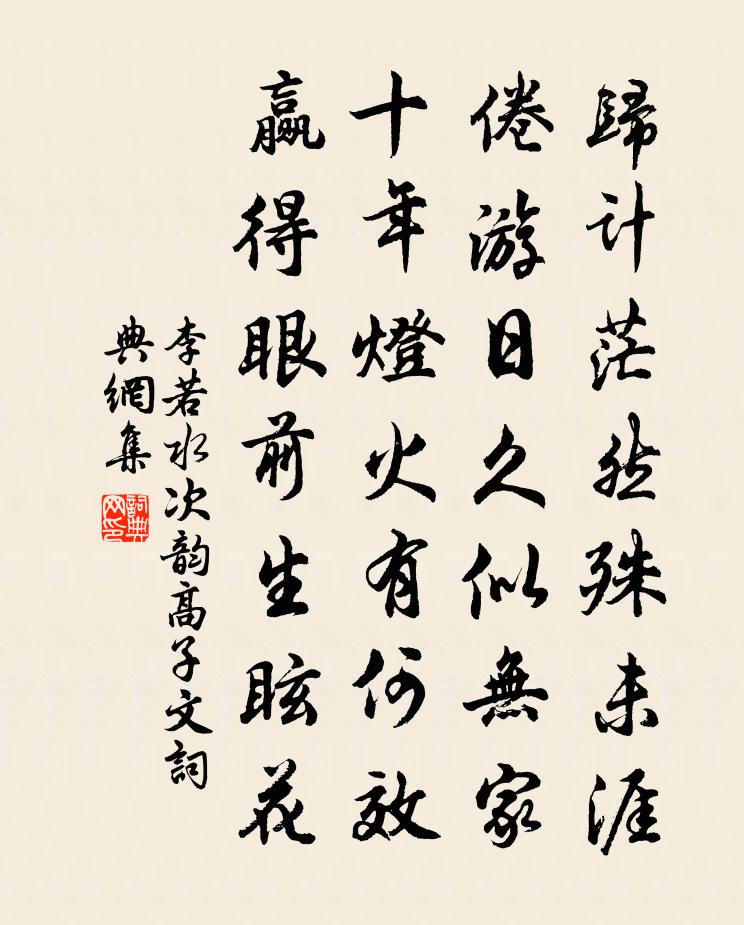 歸計茫然殊未涯
倦游日久似無家
十年燈火有何效
赢得眼前生眩花
李若水次韵高子文詞
典網集
詞典網印